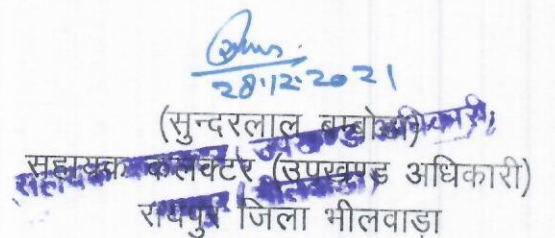 28.12.2021
(सुन्दरलाल बम्बोडा)
सहायक कलक्टर (उपखण्ड अधिकारी)
रायपुर जिला भीलवाड़ा